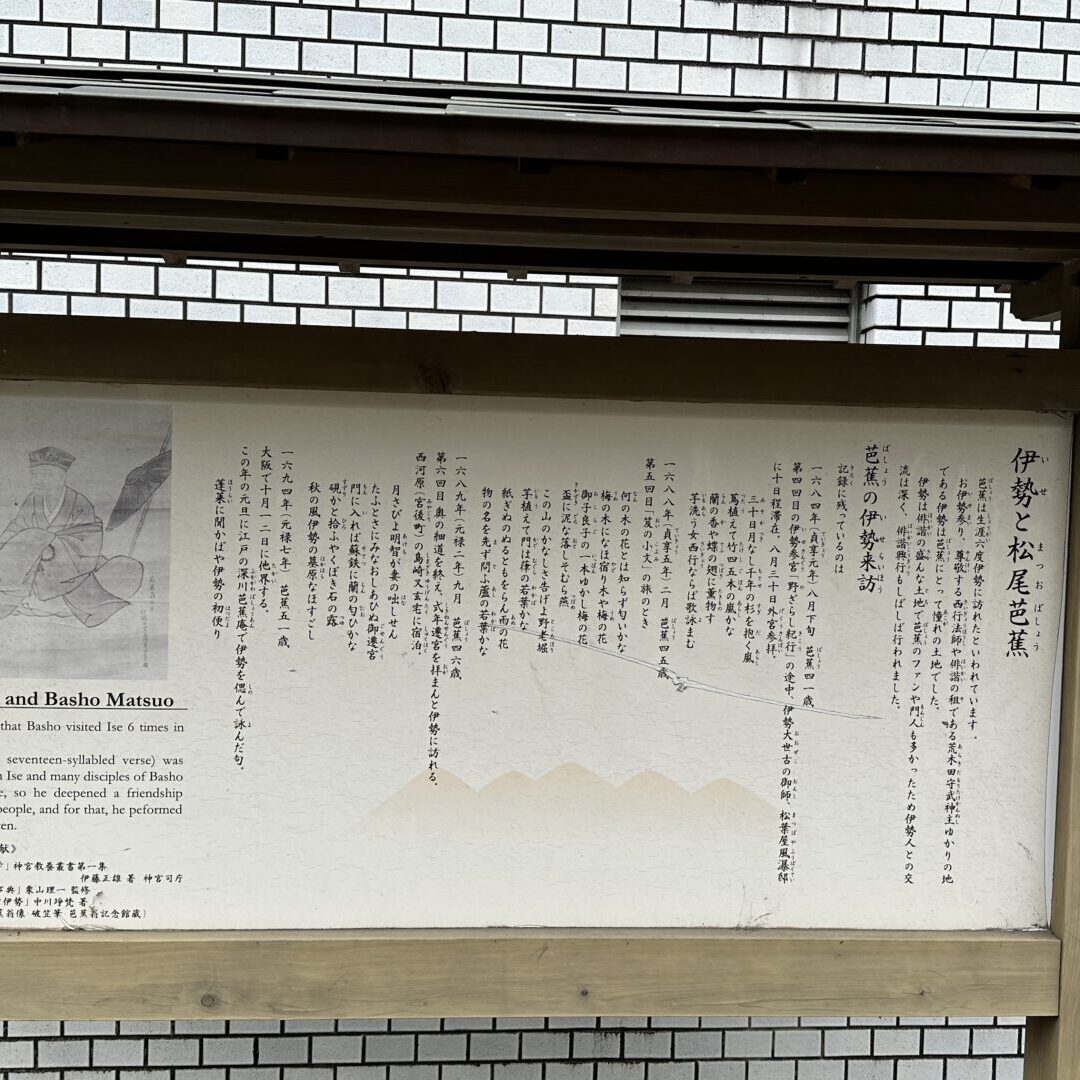 伊勢と松尾芭蕉
芭蕉は生涯六度伊勢に訪れたといわれています。
お伊勢参り、尊敬する西行法師や俳諧の祖である荒木田守武神主ゆかりの地
である伊勢は芭蕉にとって憧れの土地でした。
伊勢は俳諧の盛んな土地で芭蕉のファンや門人も多かったため伊勢人との交
流は深く、俳諧興行もしばしば行われました。
芭蕉の伊勢来訪
記録に残っているのは
一六八四年(貞享元年)八月下旬 芭蕉四一歳
第四回目の伊勢参宮「野ざらし紀行」の途中、伊勢大世古の御師、松葉屋風瀑邸
に十日程滞在、八月三十日外宮参拝。
三十日月なし千年の杉を抱く嵐
蔦植えて竹四五本の嵐かな
蘭の香や蝶の翅に薫物す
芋洗う女西行ならば歌詠まむ
一六八八年(貞享五年)二月 芭蕉四五歳
第五回目「笈の小文」の旅のとき
何の木の花とは知らず匂いかな
梅の木になほ宿り木や梅の花
御子良子の一本ゆかし梅の花
盃に泥な落しそむら燕
この山のかなしさ告げよ野老堀
芋植えて門は葎の若葉かな
紙ぎぬのぬるともをらん雨の花
物の名を先ず問ふ蘆の若葉かな
一六八九年(元禄二年)九月 芭蕉四六歳
第六回目 奥の細道を終え、式年遷宮を拝まんと伊勢に訪れる。
西河原(宮後町)の島崎又玄宅に宿泊。
月さびよ明智が妻の咄しせん
たふとさにみなおしあひぬ御遷宮
門に入れば蘇鉄に蘭の匂ひかな
硯かと拾ふやくぼき石の露
秋の風伊勢の墓原なほすごし
一六九四年(元禄七年) 芭蕉五一歳
大阪で十月十二日に他界する。
この年の元旦に江戸の深川芭蕉庵で伊勢を偲んで詠んだ句。
蓬莱に聞かばや伊勢の初便り
and Basho Matsuo
that Basho visited Ise 6 times in
seventeen-syllabled verse) was
Ise and many disciples of Basho
so he deepened a friendship
people, and for that, he peformed
献》
」神宮教養叢書第一集
伊藤正雄 著 神宮司庁
典」栗山理一 監修
伊勢」中川 著
像 破笠筆 芭蕉翁記念館蔵)